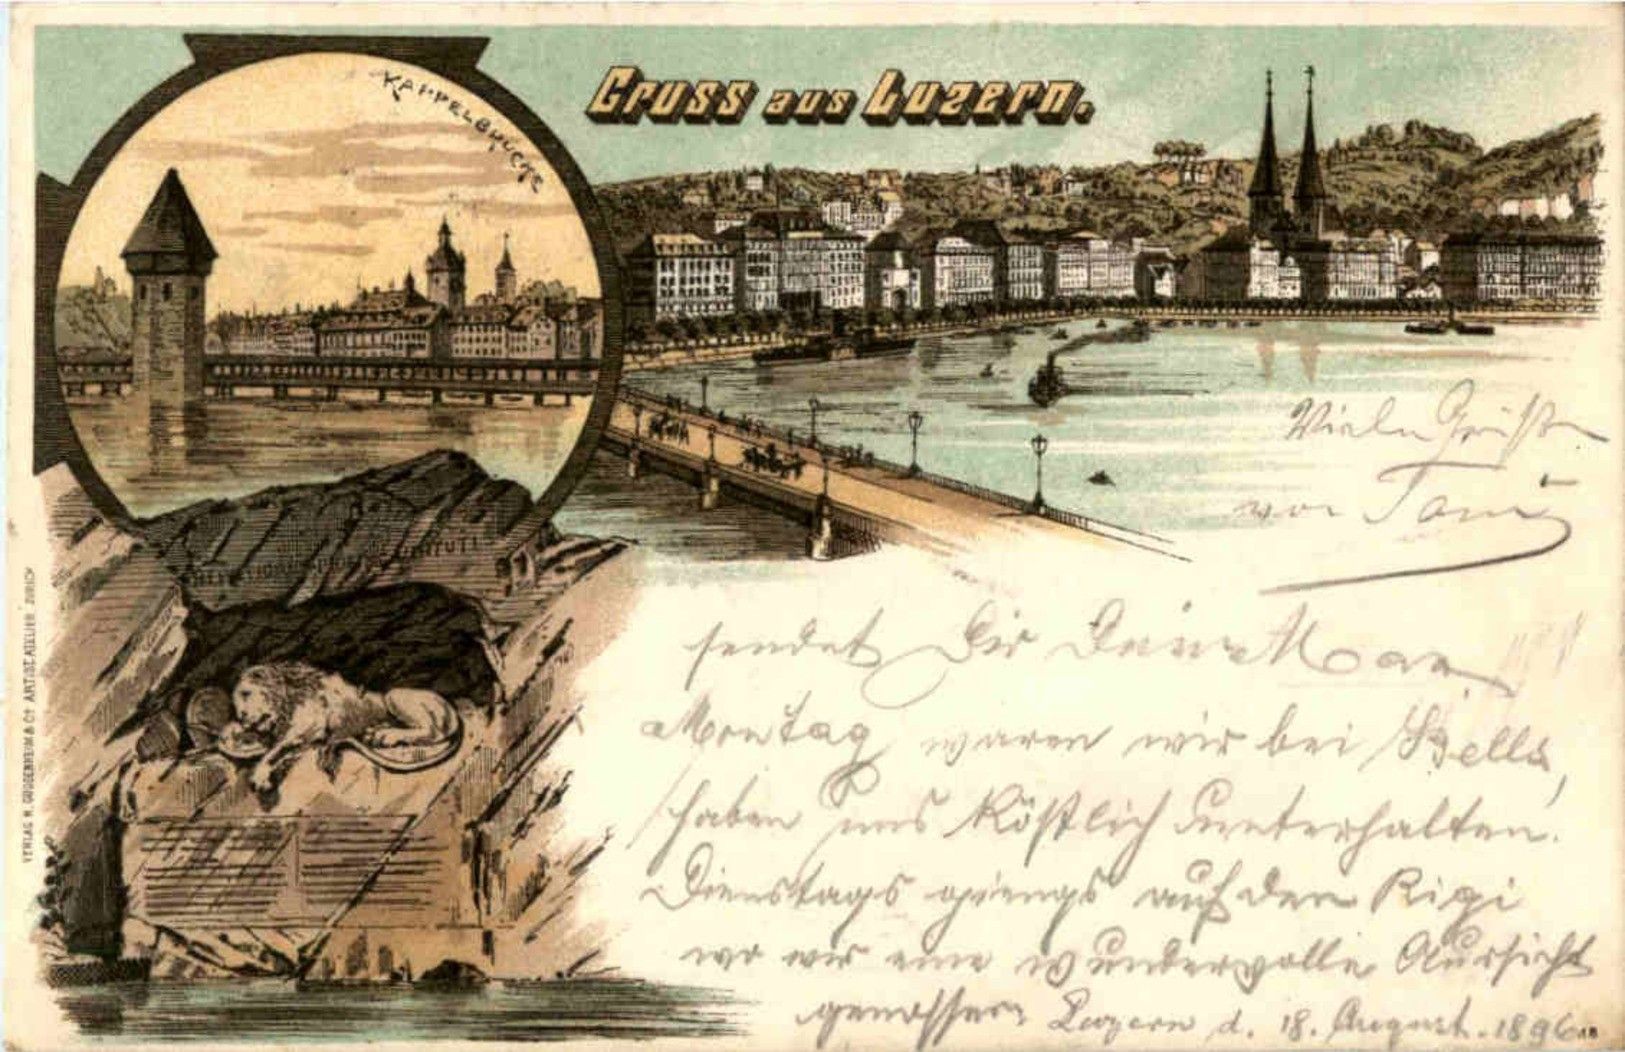 Gruss aus Luzern.
KAPPELBRÜCKE
HELVETIORUM FIDEI AC VIRTUTI
VERLAG H. GUGGENHEIM & Cº ARTIST. ATELIER ZÜRICH
Viele Grüße
von
sendet Dir Deine
Montag waren wir bei
haben uns köstlich unterhalten.
Dienstags giengs auf den Rigi
wo wir eine wundervolle Aussicht
genossen. Luzern d. 18. August. 1896